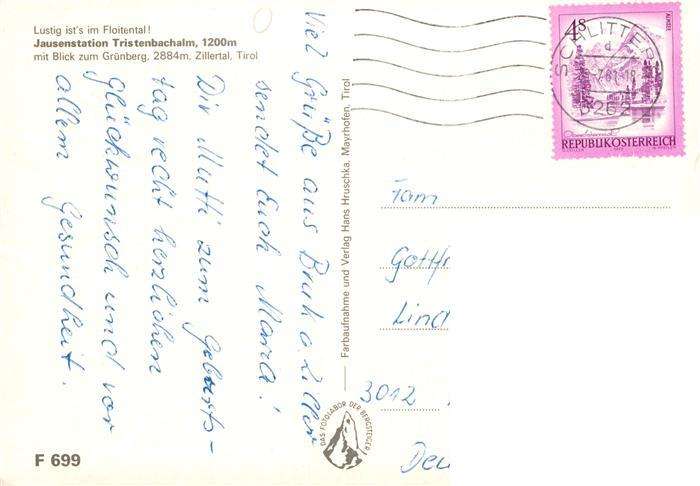 Lustig ist's im Floitental!
Jausenstation Tristenbachalm, 1200m
mit Blick zum Grünberg, 2884m, Zillertal, Tirol
Viel Grüße aus Bruk a. Ziller
sendet Euch Maria!
Dir Mutti zum Geburts-
tag recht herzlichen
Glückwunsch und vor
allem Gesundheit.
F 699
Farbaufnahme und Verlag Hans Hruschka, Mayrhofen, Tirol
DAS FOTOLABOR DER BERGSTEIGER
4S
REPUBLIK ÖSTERREICH
SCHLITTER
d
6262
Fam
Gotth
Lind
3012
Deu